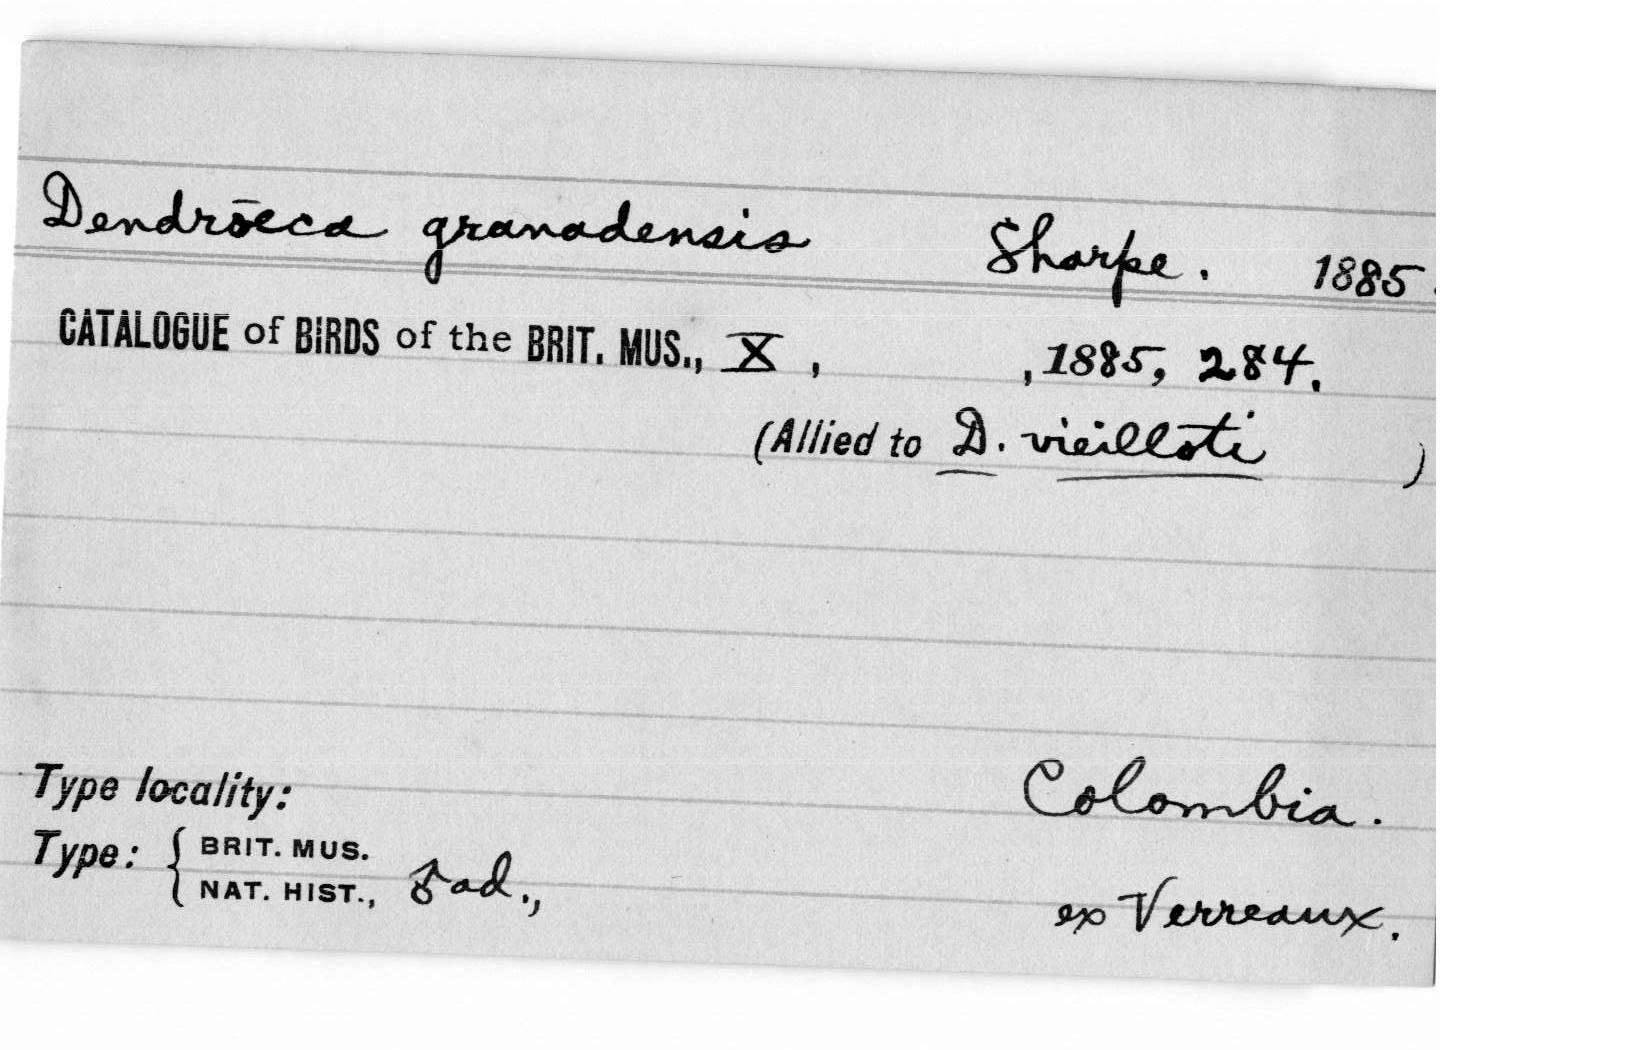 Dendrōeca granadensis Sharpe. 1885.
CATALOGUE of BIRDS of the BRIT. MUS., X, , 1885, 284.
(Allied to D. vieilloti )
Type locality: Colombia.
Type: { BRIT. MUS.
NAT. HIST., ♂ ad., ex Verreaux.